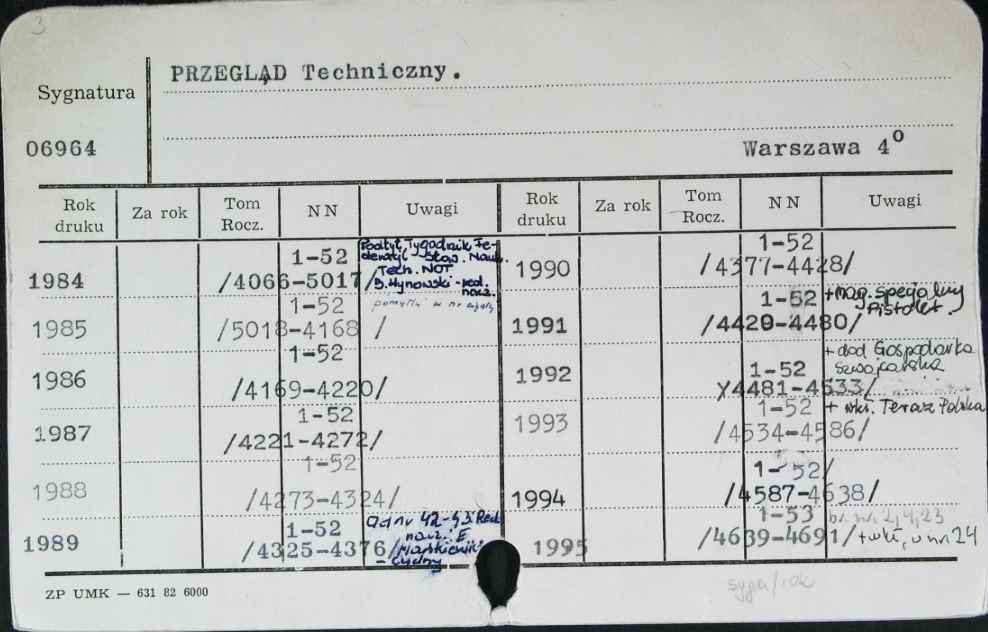 3
PRZEGLĄD Techniczny.
Sygnatura
06964
Warszawa 4°
Rok druku Za rok Tom Rocz. NN Uwagi Rok druku Za rok Tom Rocz. NN Uwagi
1984 1-52 /4066-5017/ Podtyt. Tygodnik Fe-
deracji Stow. Nauk.
Tech. NOT
B. Hynowski - red.
nacz.
1985 1-52 /5018-4168 / pomyłki w nr
1986 1-52 /4169-4220/
1987 1-52 /4221-4272/
1988 1-52 /4273-4324/
1989 1-52 /4325-4376/ Od nr 42-43 Red.
nacz. E.
1990 1-52 /4377-4428/
1991 1-52 /4429-4480/ + mag. specjalny
Pistolet.
1992 1-52 /4481-4533/ + dod Gospodarka
Szwajcarska
1993 1-52 /4534-4586/ + wkł. Teraz Polska
1994 1-52/ /4587-4638/
1995 1-53 /4639-4691/ br. nr. 2,4,23
+ wkł, w nr 24
ZP UMK — 631 82 6000